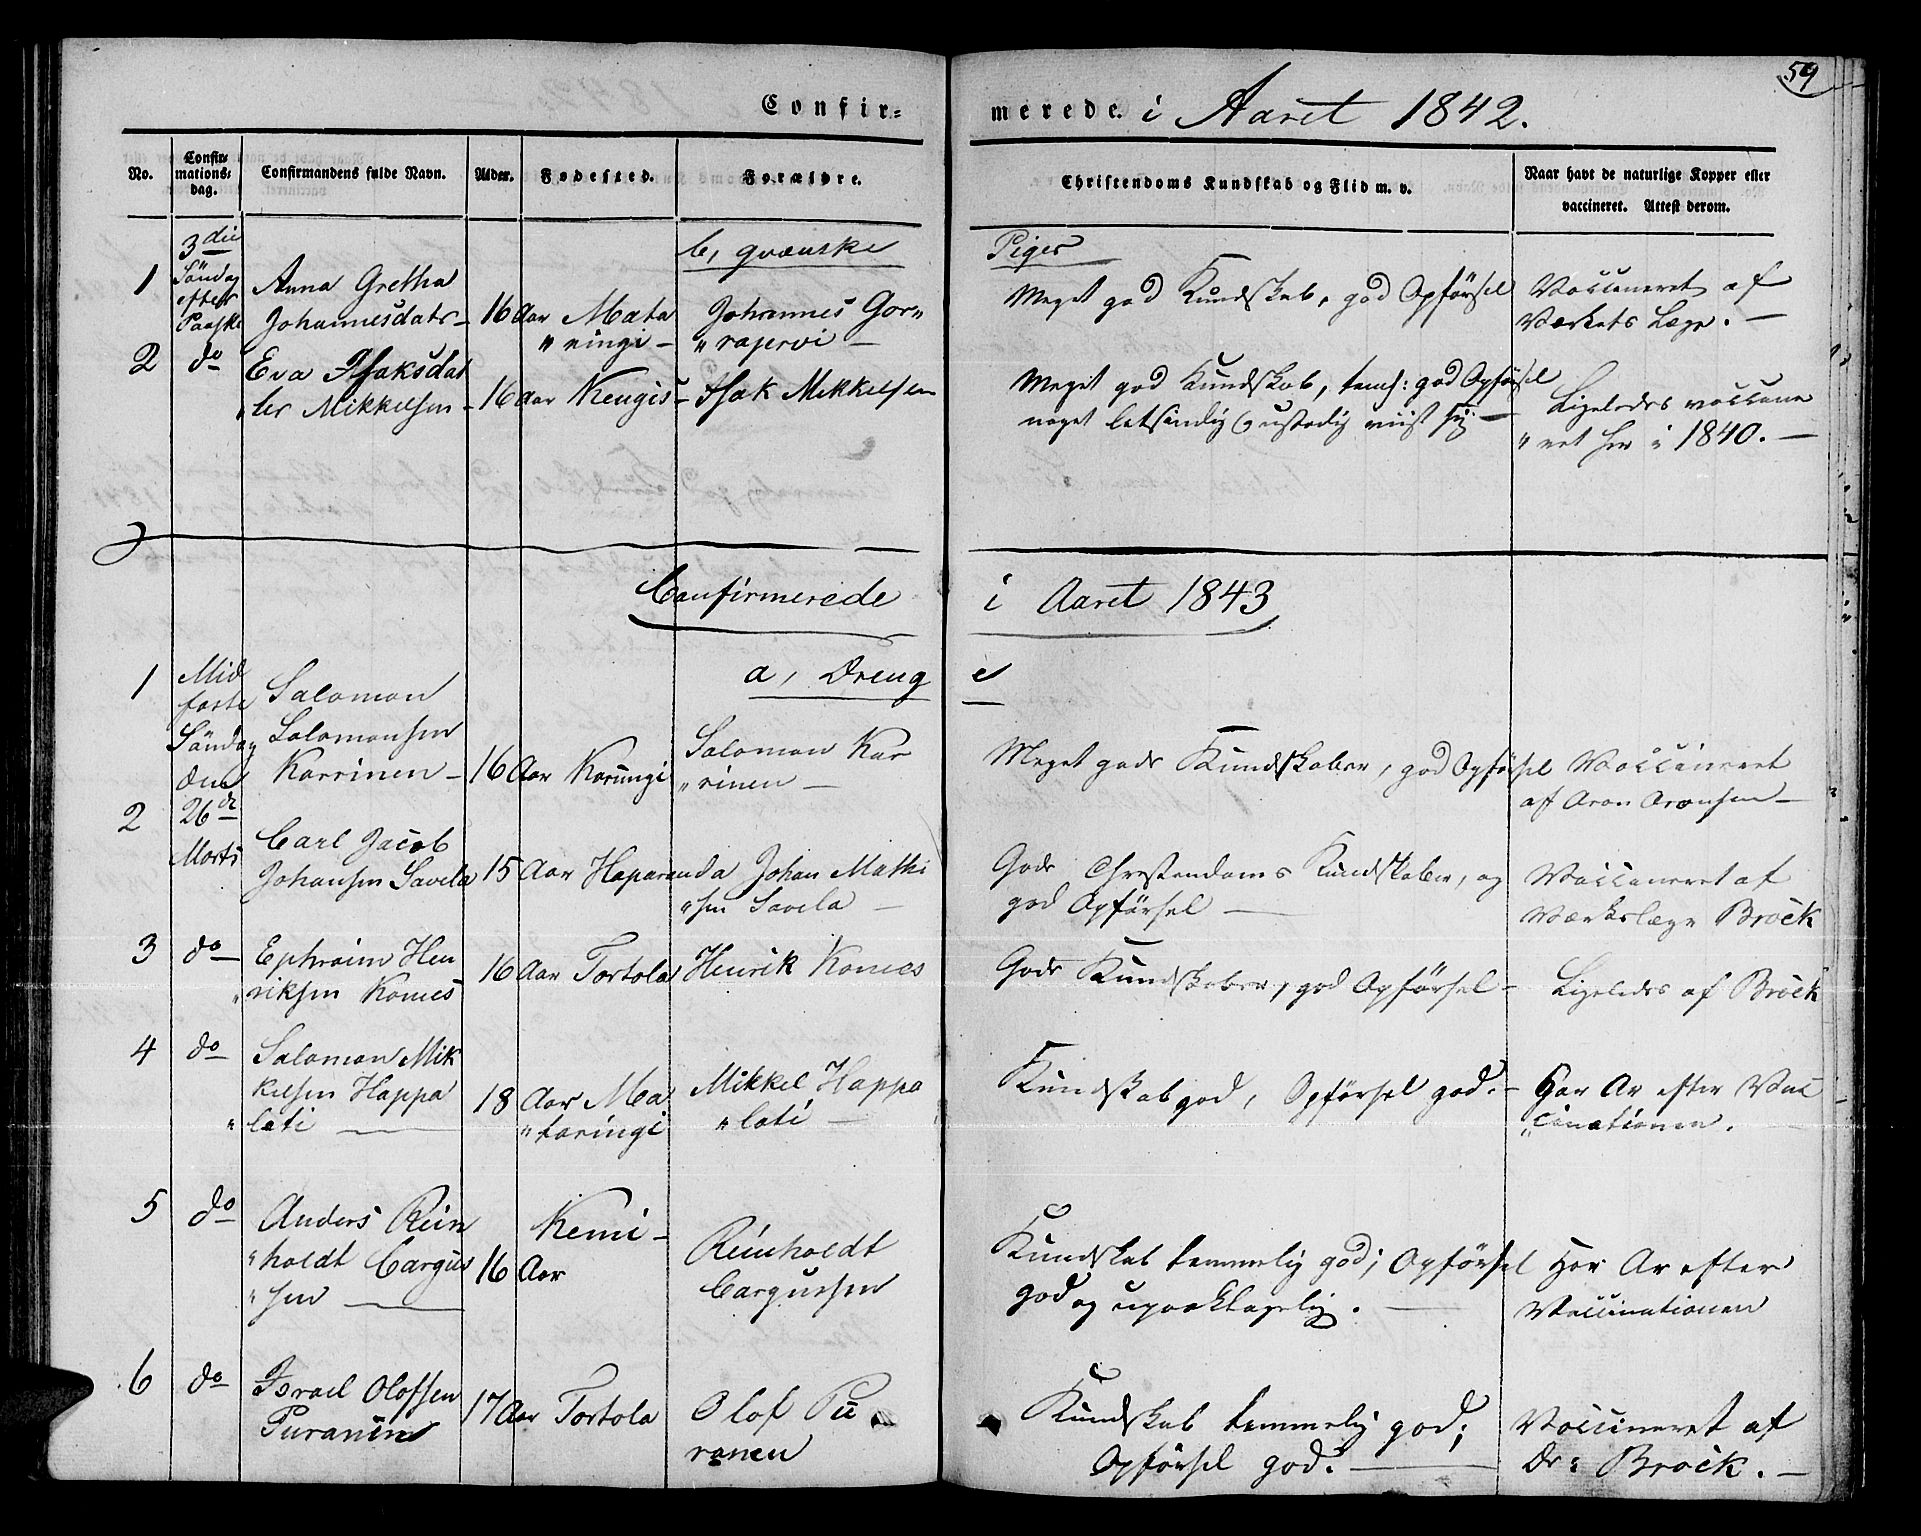 59
Confir- merede. i Aaret 1842.
No. Confir-mations-dag. Confirmandens fulde Navn. Alder. Fødested. Forældre. Christendoms Kundskab og Flid m. v. Naar havt de naturlige Kopper eller vaccineret. Attest derom.
b, qvænske Piger
1 3die Söndag efter Paaske Anna Gretha
Johannesdatr 16 Aar Mata
"ringi Johannes Gor"
"rajervi Meget god Kundskab, god Opförsel Vaccineret af
Værkets Læge.
2 do Eva Isaksdat
ter Mikkelsen 16 Aar Kengis Isak Mikkelsen Meget god Kundskab, god Opförsel
noget letsindig Ligeledes vaccine
"ret her i 1840.
Confirmerede i Aaret 1843
a, Drenge
1 Mid
faste
Söndag
den
26de
Marts Salomon
Salomonsen
Karrinen 16 Aar Karungi Salomon Kar
"rinen Meget gode Kundskaber, god Opförsel Vaccineret
af Aron Aronsen
2 Carl Jacob
Johansen Savela 15 Aar Haparanda Johan Mathi
"sen Savela Gode Christendoms Kundskaber, og
god Opförsel Vaccineret af
Værkslæge Brock
3 do Ephraim Hen
"riksen Konies 16 Aar Tortola Henrik Konies Gode Kundskaber, god Opförsel Ligeledes af Brock
4 do Salomon Mik
kelsen Happa
"lati 18 Aar Ma
"taringi Mikkel Happa
"lati Kundskab god, Opförsel god. Har Ar efter Vac
"cinationen.
5 do Anders Rein
"holdt Cargus
"sen 16 Aar Kemi Reinholdt
Cargussen Kundskab temmelig god; Opförsel
god og upaaklagelig. Har Ar efter
Vaccinationen
6 do Israel Olofsen
Puranen 17 Aar Tortola Olof Pu
ranen Kundskab temmelig god;
Opförsel god. Vaccineret af
Dr: Brock.